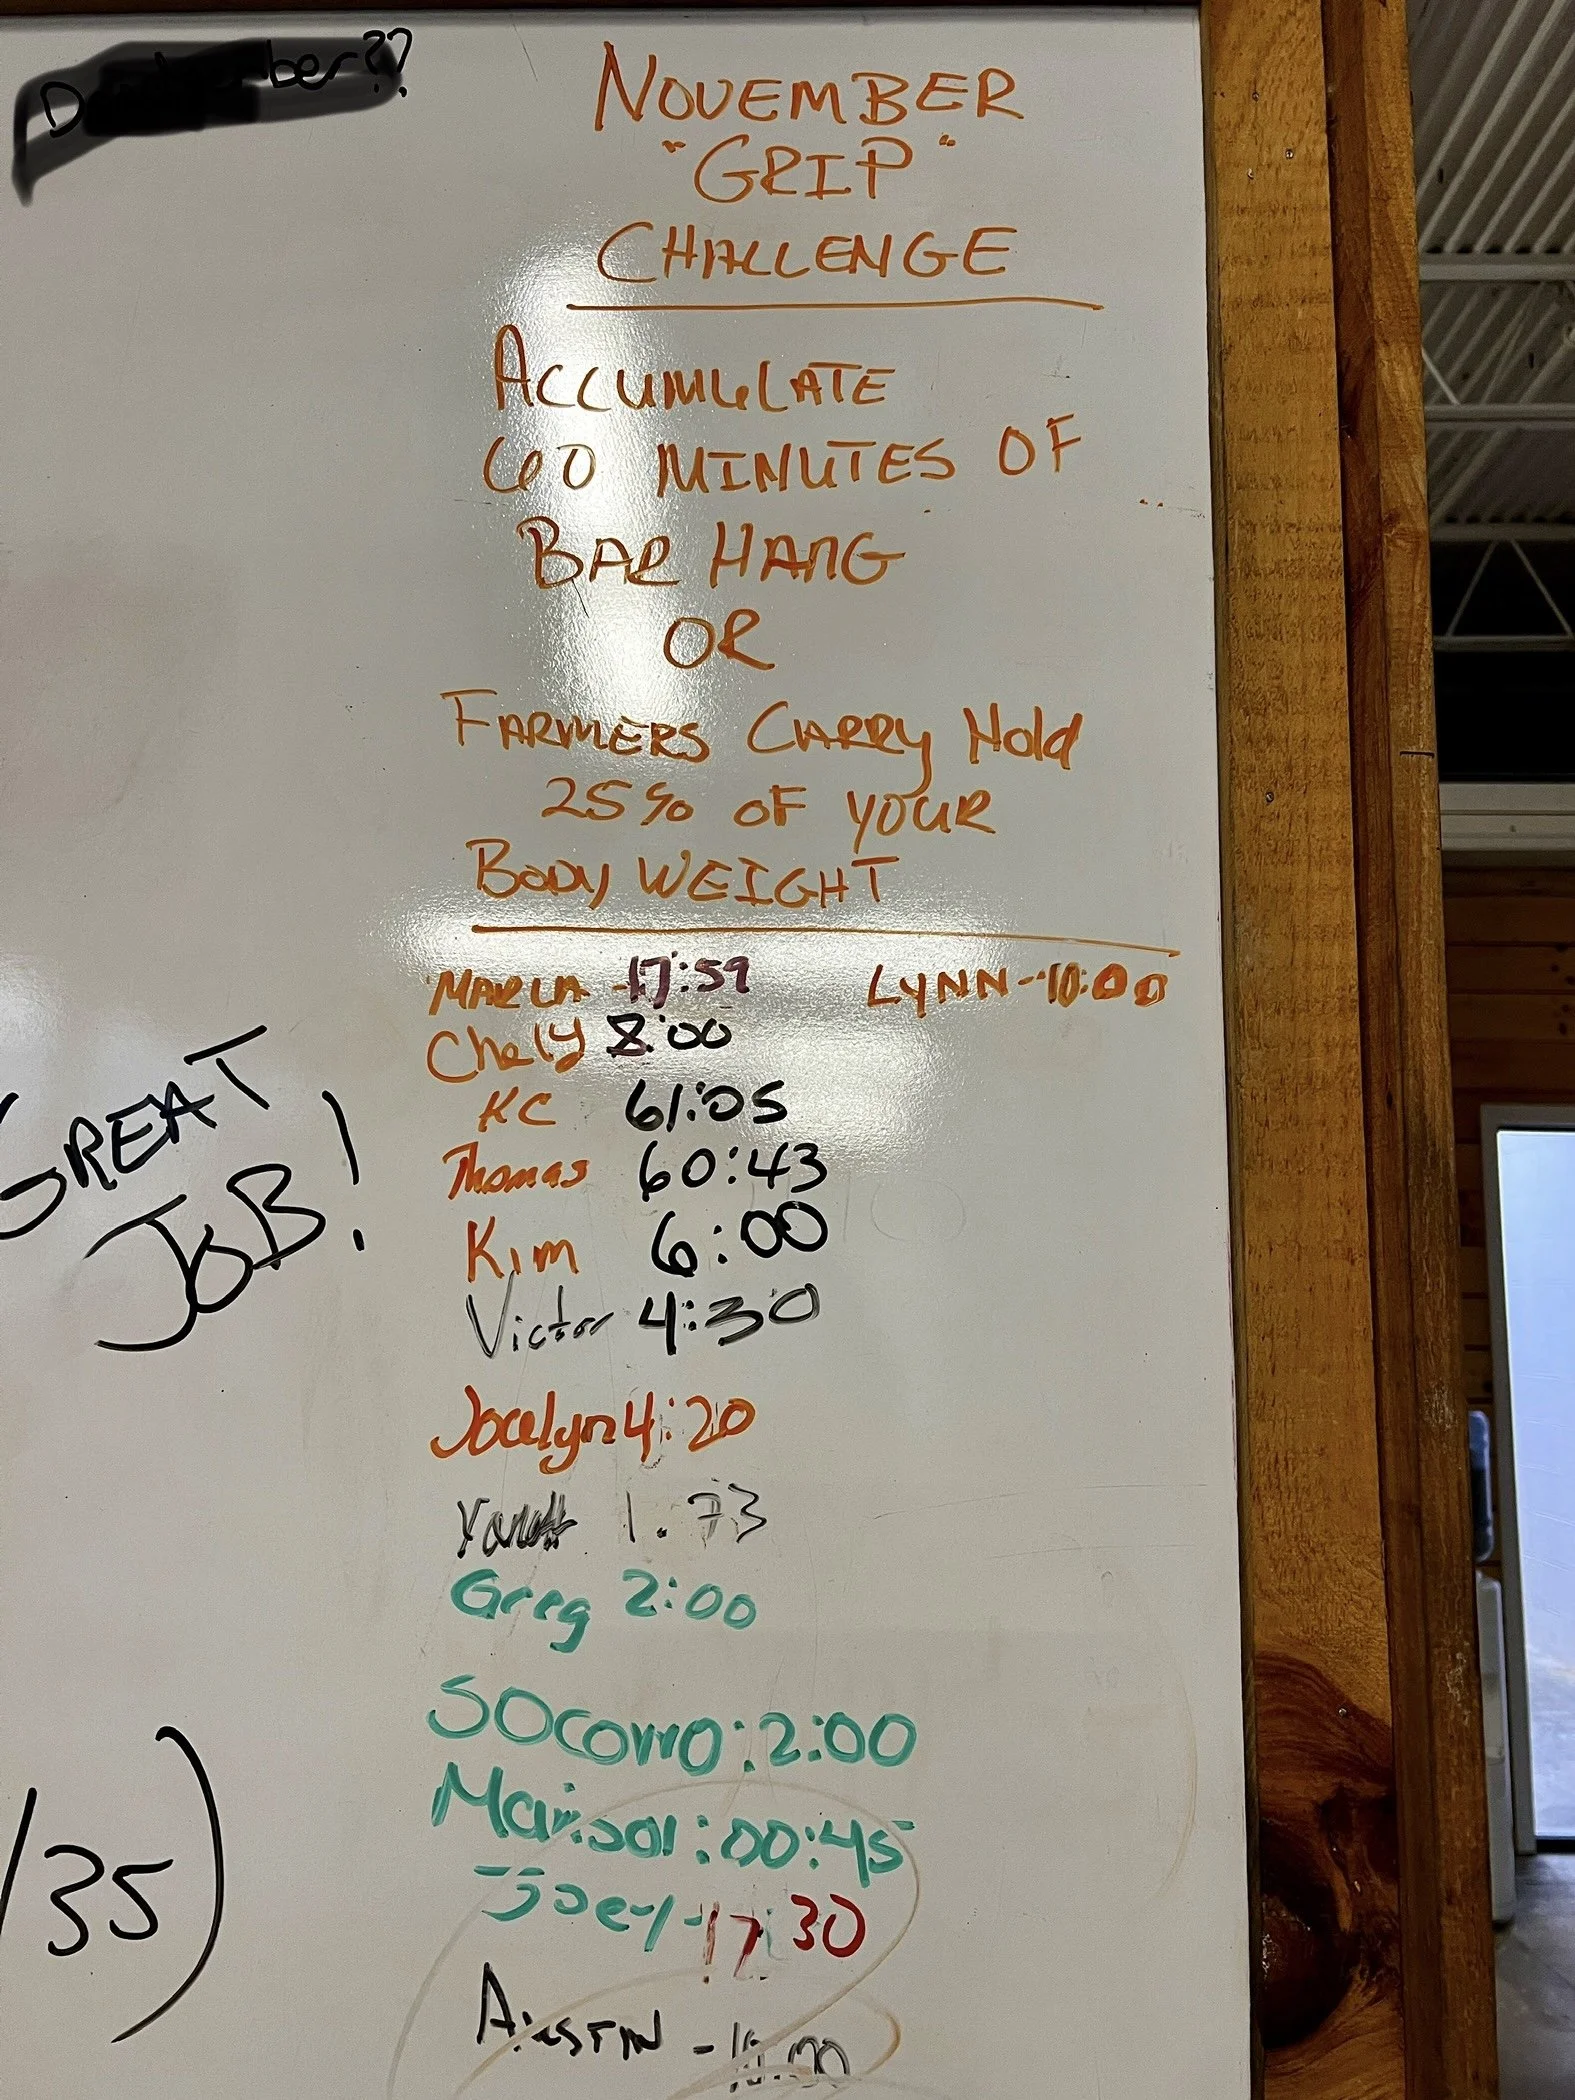 NOVEMBER
"GRIP"
CHALLENGE
ACCUMULATE
60 MINUTES OF
BAR HANG
OR
FARMERS CARRY Hold
25% OF YOUR
BODY WEIGHT
MARLA -17:59
LYNN-10:00
Chely 8:00
KC 61:05
Thomas 60:43
Kim 6:00
Victor 4:30
GREAT
JOB!
Jocelyn 4:20
1.73
Greg 2:00
SOcorro:2:00
Marisol:00:45
Joey-17:30
/35)
AUSTIN -